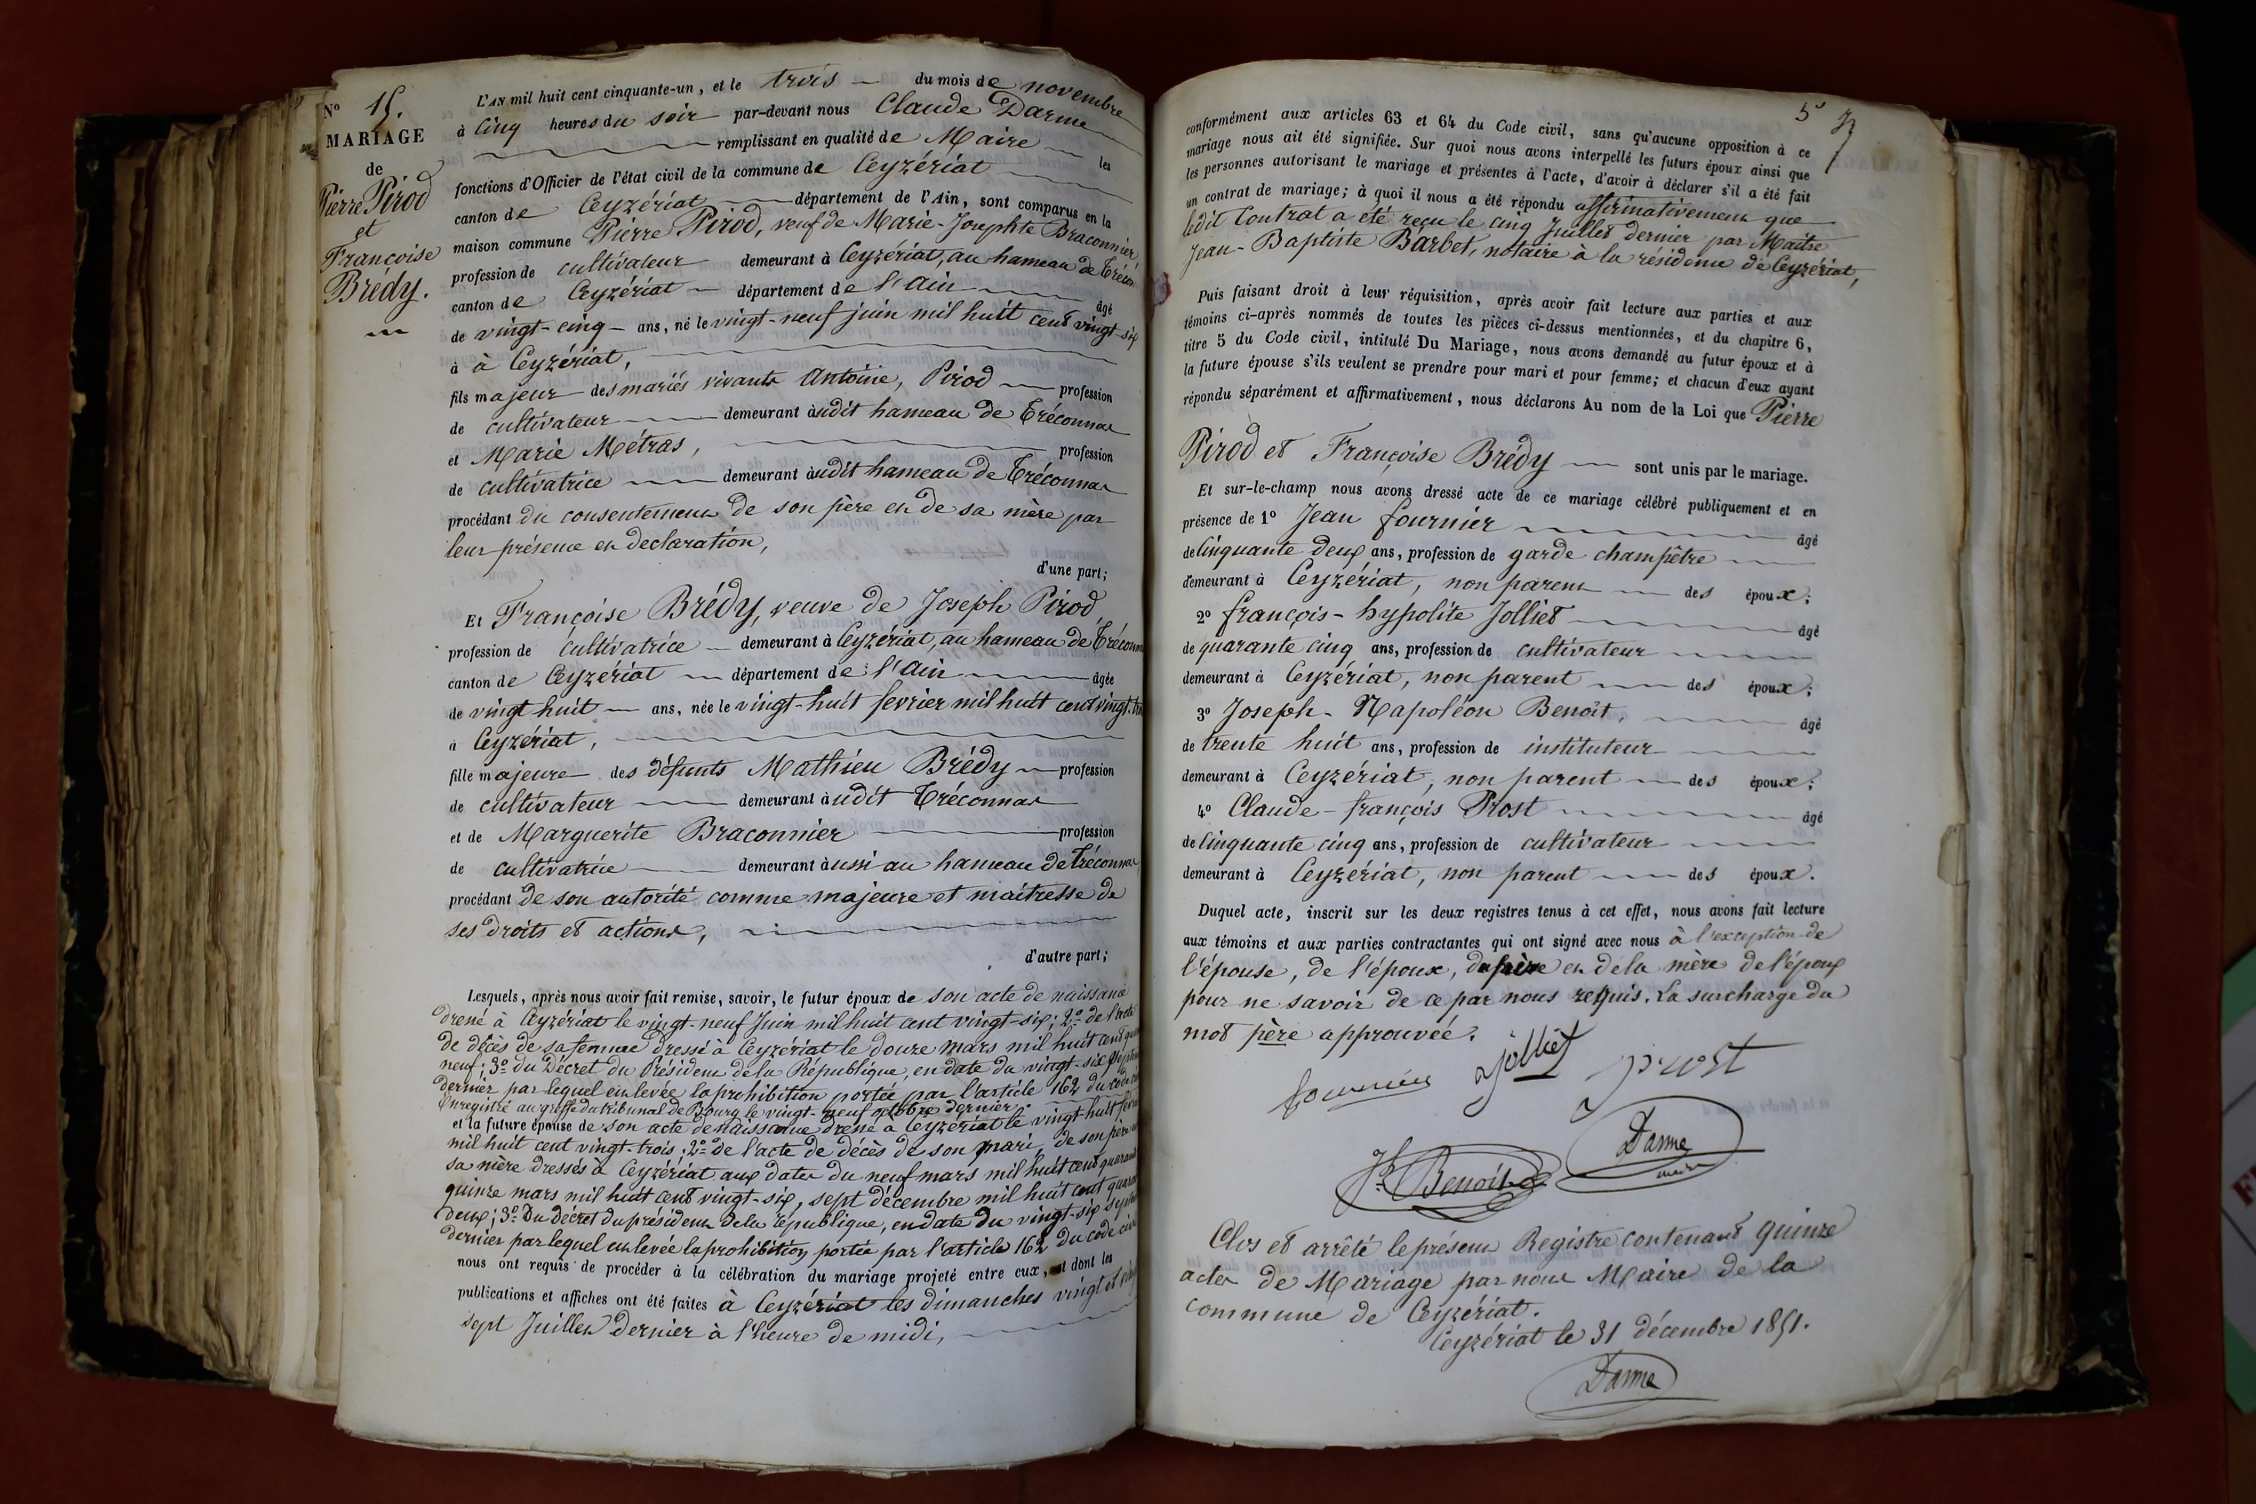 No 15.
MARIAGE
de
Pierre Pirod
et
Françoise
Brédy.
L'AN mil huit cent cinquante-un, et le trois du mois de novembre
à cinq heures du soir par-devant nous Claude Darme
remplissant en qualité de Maire les
fonctions d'Officier de l'état civil de la commune de Ceyzériat
canton de Ceyzériat département de l'Ain, sont comparus en la
maison commune Pierre Pirod, veuf de Marie-Josephte Braconnier,
profession de cultivateur demeurant à Ceyzériat, au hameau de
canton de Ceyzériat département de l'Ain âgé
de vingt-cinq ans, né le vingt-neuf juin mil huit cent vingt-six
à à Ceyzériat,
fils majeur des mariés vivants Antoine, Pirod profession
de cultivateur demeurant àudit hameau de Tréconnas
et Marie Métras, profession
de cultivatrice demeurant àudit hameau de Tréconnas
procédant du consentement de son père et de sa mère par
leur présence et declaration,
d'une part;
Et Françoise Brédy, veuve de Joseph Pirod,
profession de cultivatrice demeurant à Ceyzériat, au hameau de
canton de Ceyzériat département de l'Ain âgée
de vingt huit ans, née le vingt-huit fevrier mil huit cent vingt
à Ceyzériat,
fille majeure des défunts Mathieu Brédy profession
de cultivateur demeurant àudit Tréconnas
et de Marguerite Braconnier profession
de cultivatrice demeurant àussi au hameau de Tréconnas,
procédant de son autorité comme majeure et maîtresse de
ses droits et actions,
d'autre part;
Lesquels, après nous avoir fait remise, savoir, le futur époux de son acte de naissance
dressé à Ceyzériat le vingt-neuf Juin mil huit cent vingt-six; 2º de l'acte
de décès de sa femme dressé à Ceyzériat le douze mars mil huit cent
neuf; 3º du Décret du Président de la République, en date du vingt-six
dernier par lequel est levée la prohibition portée par l'article 162 du code
Enregistré au greffe du tribunal de Bourg le vingt-neuf octobre dernier
et la future épouse de son acte de naissance dressé à Ceyzériat le vingt huit
mil huit cent vingt-trois; 2º de l'acte de décès de son mari, de son père
sa mère dressés à Ceyzériat aux dates du neuf mars mil huit cent
quinze mars mil huit cent vingt-six, sept décembre mil huit cent
deux; 3º Du Décret du président de la république, en date du vingt-six
dernier par lequel est levée la prohibition portée par l'article 162 du code
nous ont requis de procéder à la célébration du mariage projeté entre eux, et dont les
publications et affiches ont été faites à Ceyzériat les dimanches vingt et
sept Juillet dernier à l'heure de midi,
conformément aux articles 63 et 64 du Code civil, sans qu'aucune opposition à ce
mariage nous ait été signifiée. Sur quoi nous avons interpellé les futurs époux ainsi que
les personnes autorisant le mariage et présentes à l'acte, d'avoir à déclarer s'il a été fait
un contrat de mariage; à quoi il nous a été répondu affirmativement que
ledit Contrat a été reçu le cinq Juillet dernier par Maître
Jean-Baptiste Barbet, notaire à la résidence de Ceyzériat,
Puis faisant droit à leur réquisition, après avoir fait lecture aux parties et aux
témoins ci-après nommés de toutes les pièces ci-dessus mentionnées, et du chapitre 6,
titre 5 du Code civil, intitulé Du Mariage, nous avons demandé au futur époux et à
la future épouse s'ils veulent se prendre pour mari et pour femme; et chacun d'eux ayant
répondu séparément et affirmativement, nous déclarons Au nom de la Loi que Pierre
Pirod et Françoise Brédy sont unis par le mariage.
Et sur-le-champ nous avons dressé acte de ce mariage célébré publiquement et en
présence de 1º Jean fournier âgé
de cinquante deux ans, profession de garde champêtre
demeurant à Ceyzériat, non parent des époux;
2º françois-hypolite Jolliet âgé
de quarante cinq ans, profession de cultivateur
demeurant à Ceyzériat, non parent des époux;
3º Joseph-Napoléon Benoît, âgé
de trente huit ans, profession de instituteur
demeurant à Ceyzériat, non parent des époux;
4º Claude-françois Prost âgé
de cinquante cinq ans, profession de cultivateur
demeurant à Ceyzériat, non parent des époux.
Duquel acte, inscrit sur les deux registres tenus à cet effet, nous avons fait lecture
aux témoins et aux parties contractantes qui ont signé avec nous à l'exception de
l'épouse, de l'époux, du père et de la mère de l'époux
pour ne savoir de ce par nous requis. La surcharge du
mot père approuvée.
fournier Jolliet prost
Jh. Benoit Darme
maire
Clos et arrêté le présent Registre contenant quinze
actes de Mariage par nous Maire de la
commune de Ceyzériat.
Ceyzériat le 31 décembre 1851.
Darme